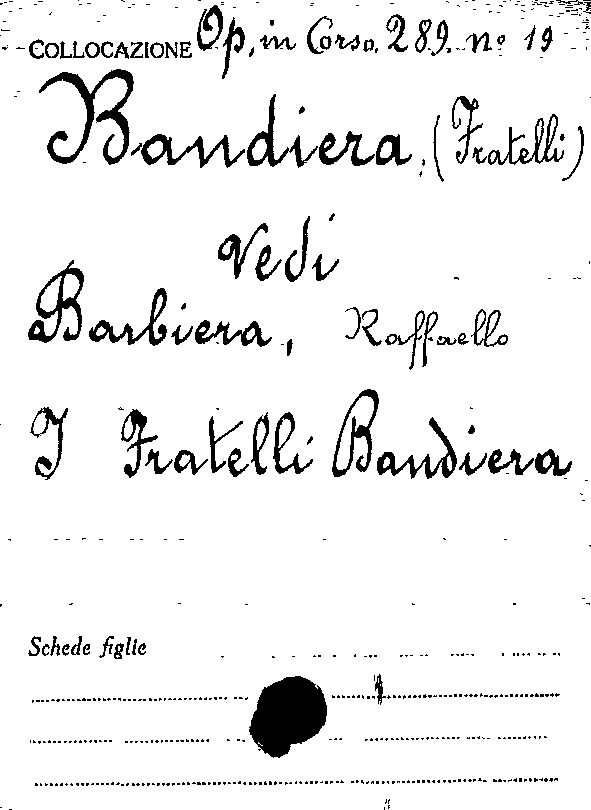 COLLOCAZIONE Op. in Corso. 289. nº 19
Bandiera, (Fratelli)
Vedi
Barbiera, Raffaello
I Fratelli Bandiera
Schede figlie